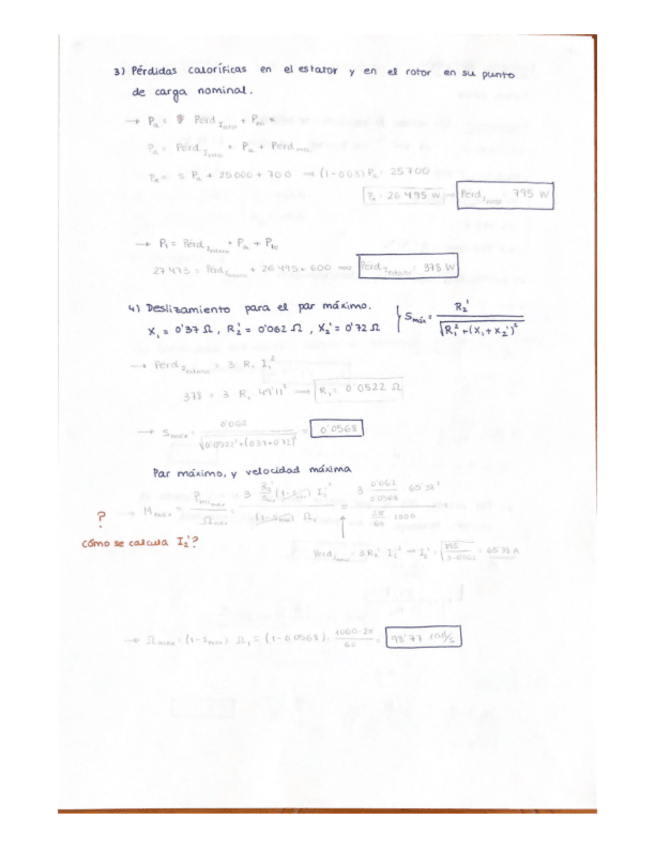 3) Pérdidas caloríficas en el estator y en el rotor en su punto
de carga nominal.
→ Pa = Perd + Pmi
Pa = Perd + Pu + Perd
Pa = s Pa + 25000 + 700 → (1-0'03) Pa = 25700
Pa = 26'495 W → Perd = 795 W
→ P1 = Perd + Pa + Pfe
27473 = Perd + 26495 + 600 → Perd = 378 W
4) Deslizamiento para el par máximo.
X1 = 0'37 Ω, R2' = 0'062 Ω, X2' = 0'72 Ω
Smáx = R2' / √(R1² + (X1 + X2')²)
→ Perd = 3 R1 I1²
378 = 3 R1 49'11² → R1 = 0'0522 Ω
→ Smáx = 0'062 / √(0'0522² + (0'37+0'72)²) = 0'0568
Par máximo, y velocidad máxima
→ Mmáx = Pmi máx / Ωmáx = 3 R2'/Smáx (1-Smáx) I2'² / (1-Smáx) Ω1 = 3 0'062/0'0568 65'38² / 2π/60 1000
?
cómo se calcula I2'?
Perd = 3 R2' I2'² → I2' = √795/3·0'062 = 65'38 A
→ Ωmáx = (1-Smáx) Ω1 = (1-0'0568) · 1000·2π/60 = 98'77 rad/s